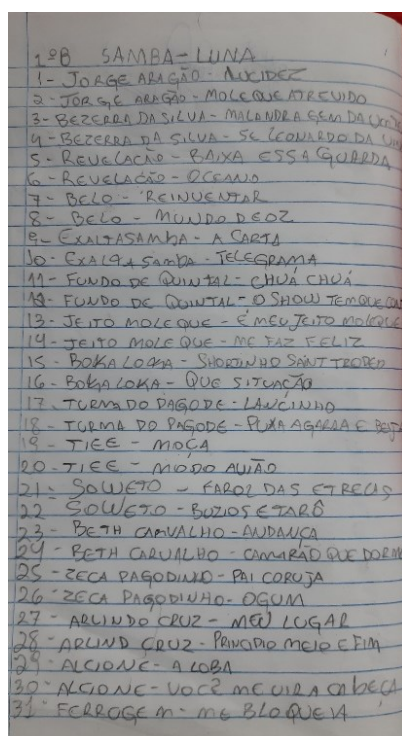 1ºB SAMBA-LUNA
1- JORGE ARAGÃO - LUCIDEZ
2- JORGE ARAGÃO - MOLEQUE ATREVIDO
3- BEZERRA DA SILVA - MALANDRAGEM DA
4- BEZERRA DA SILVA - SE LEONARDO DA
5- REVELAÇÃO - BAIXA ESSA GUARDA
6- REVELAÇÃO - OCEANO
7- BELO - REINVENTAR
8- BELO - MUNDO DE OZ
9- EXALTASAMBA - A CARTA
10- EXALTASAMBA - TELEGRAMA
11- FUNDO DE QUINTAL - CHUÁ CHUÁ
12- FUNDO DE QUINTAL - O SHOW TEM QUE CON
13- JEITO MOLEQUE - É MEU JEITO MOLEQUE
14- JEITO MOLEQUE - ME FAZ FELIZ
15- BOKALOKA - SHORTINHO SAINT TROPED
16- BOKALOKA - QUE SITUAÇÃO
17- TURMA DO PAGODE - LANCINHO
18- TURMA DO PAGODE - PUXA AGARRA E BEIJA
19- TIEE - MOÇA
20- TIEE - MODO AVIÃO
21- SOWETO - FAROL DAS ETRELAS
22- SOWETO - BUZIOS E TARÔ
23- BETH CARVALHO - ANDANÇA
24- BETH CARVALHO - CAMARÃO QUE DORM
25- ZECA PAGODINHO - PAI CORUJA
26- ZECA PAGODINHO - OGUM
27- ARLINDO CRUZ - MEU LUGAR
28- ARLIND CRUZ - PRINCIPIO MEIO E FIM
29- ALCIONE - A LOBA
30- ALCIONE - VOCÊ ME VIRA CABEÇA
31- FERROGEM - ME BLOQUEIA